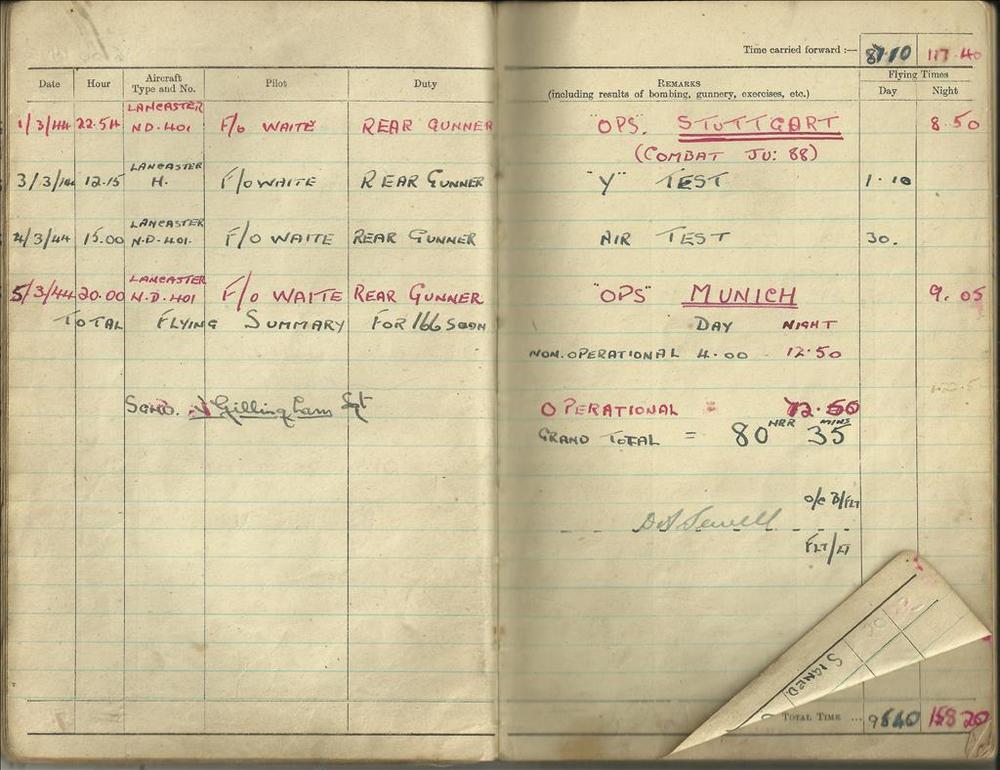 Time carried forward :— 87.10 117.40
Date Hour Aircraft Type and No. Pilot Duty REMARKS (including results of bombing, gunnery, exercises, etc.) Flying Times Day Night
1/3/44 22.54 LANCASTER ND.401 F/o WAITE REAR GUNNER "OPS. STUTTGART 8.50
(COMBAT JU: 88)
3/3/44 12.15 LANCASTER H. F/o WAITE REAR GUNNER "Y" TEST 1.10
4/3/44 15.00 LANCASTER N.D.401. F/O WAITE REAR GUNNER AIR TEST 30.
5/3/44 20.00 LANCASTER N.D.401 F/o WAITE REAR GUNNER "OPS" MUNICH 9.05
TOTAL FLYING SUMMARY FOR 166 SQDN DAY NIGHT
NON.OPERATIONAL 4.00 12.50
OPERATIONAL =
GRAND TOTAL = 80 HRR 35 MINS
Gillingham Sgt
O/C B/FLT
FLT/LT
SIGNED
TOTAL TIME ...